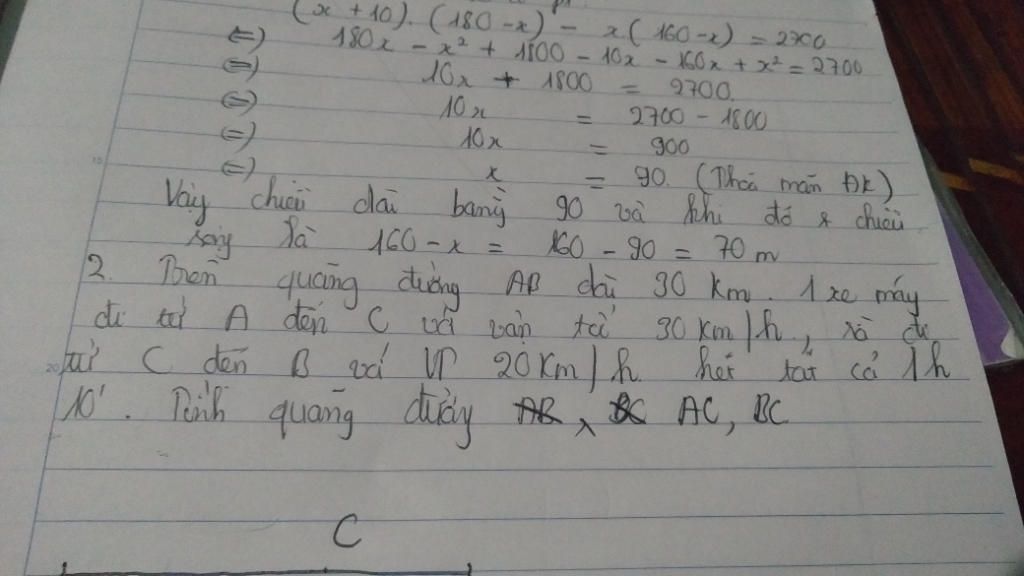 (x + 10). (180 - x) - x (160 - x) = 2700
<=> 180x - x² + 1800 - 10x - 160x + x² = 2700
<=> 10x + 1800 = 2700
<=> 10x = 2700 - 1800
<=> 10x = 900
<=> x = 90. (Thoả mãn ĐK)
Vậy chiều dài bằng 90 và khi đó chiều
rộng là 160 - x = 160 - 90 = 70 m
2. Trên quãng đường AB dài 30 km. 1 xe máy
đi từ A đến C với vận tố 30 km/h, rồi đi
từ C đến B với VT 20 Km/h hết tất cả 1h
10'. Tính quãng đường AB, BC AC, BC
C